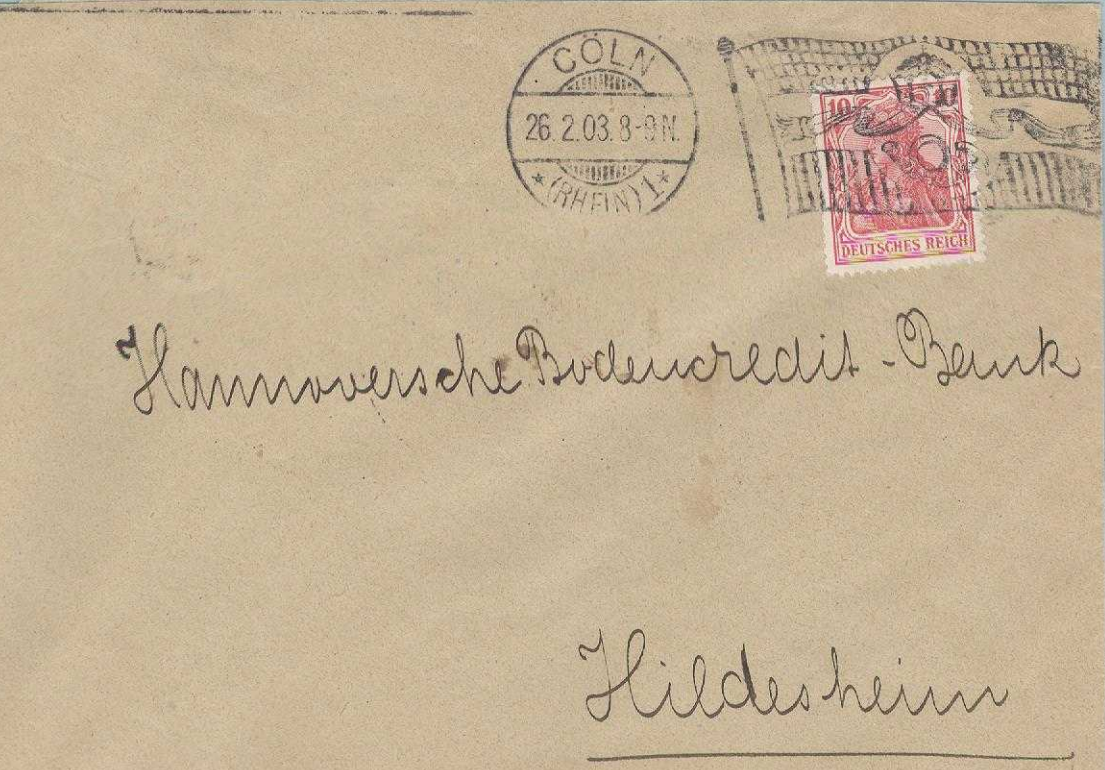 CÖLN
26.2.03.8-9N.
* (RHEIN) 1 *
10
DEUTSCHES REICH
Hannoversche Bodencredit-Bank
Hildesheim